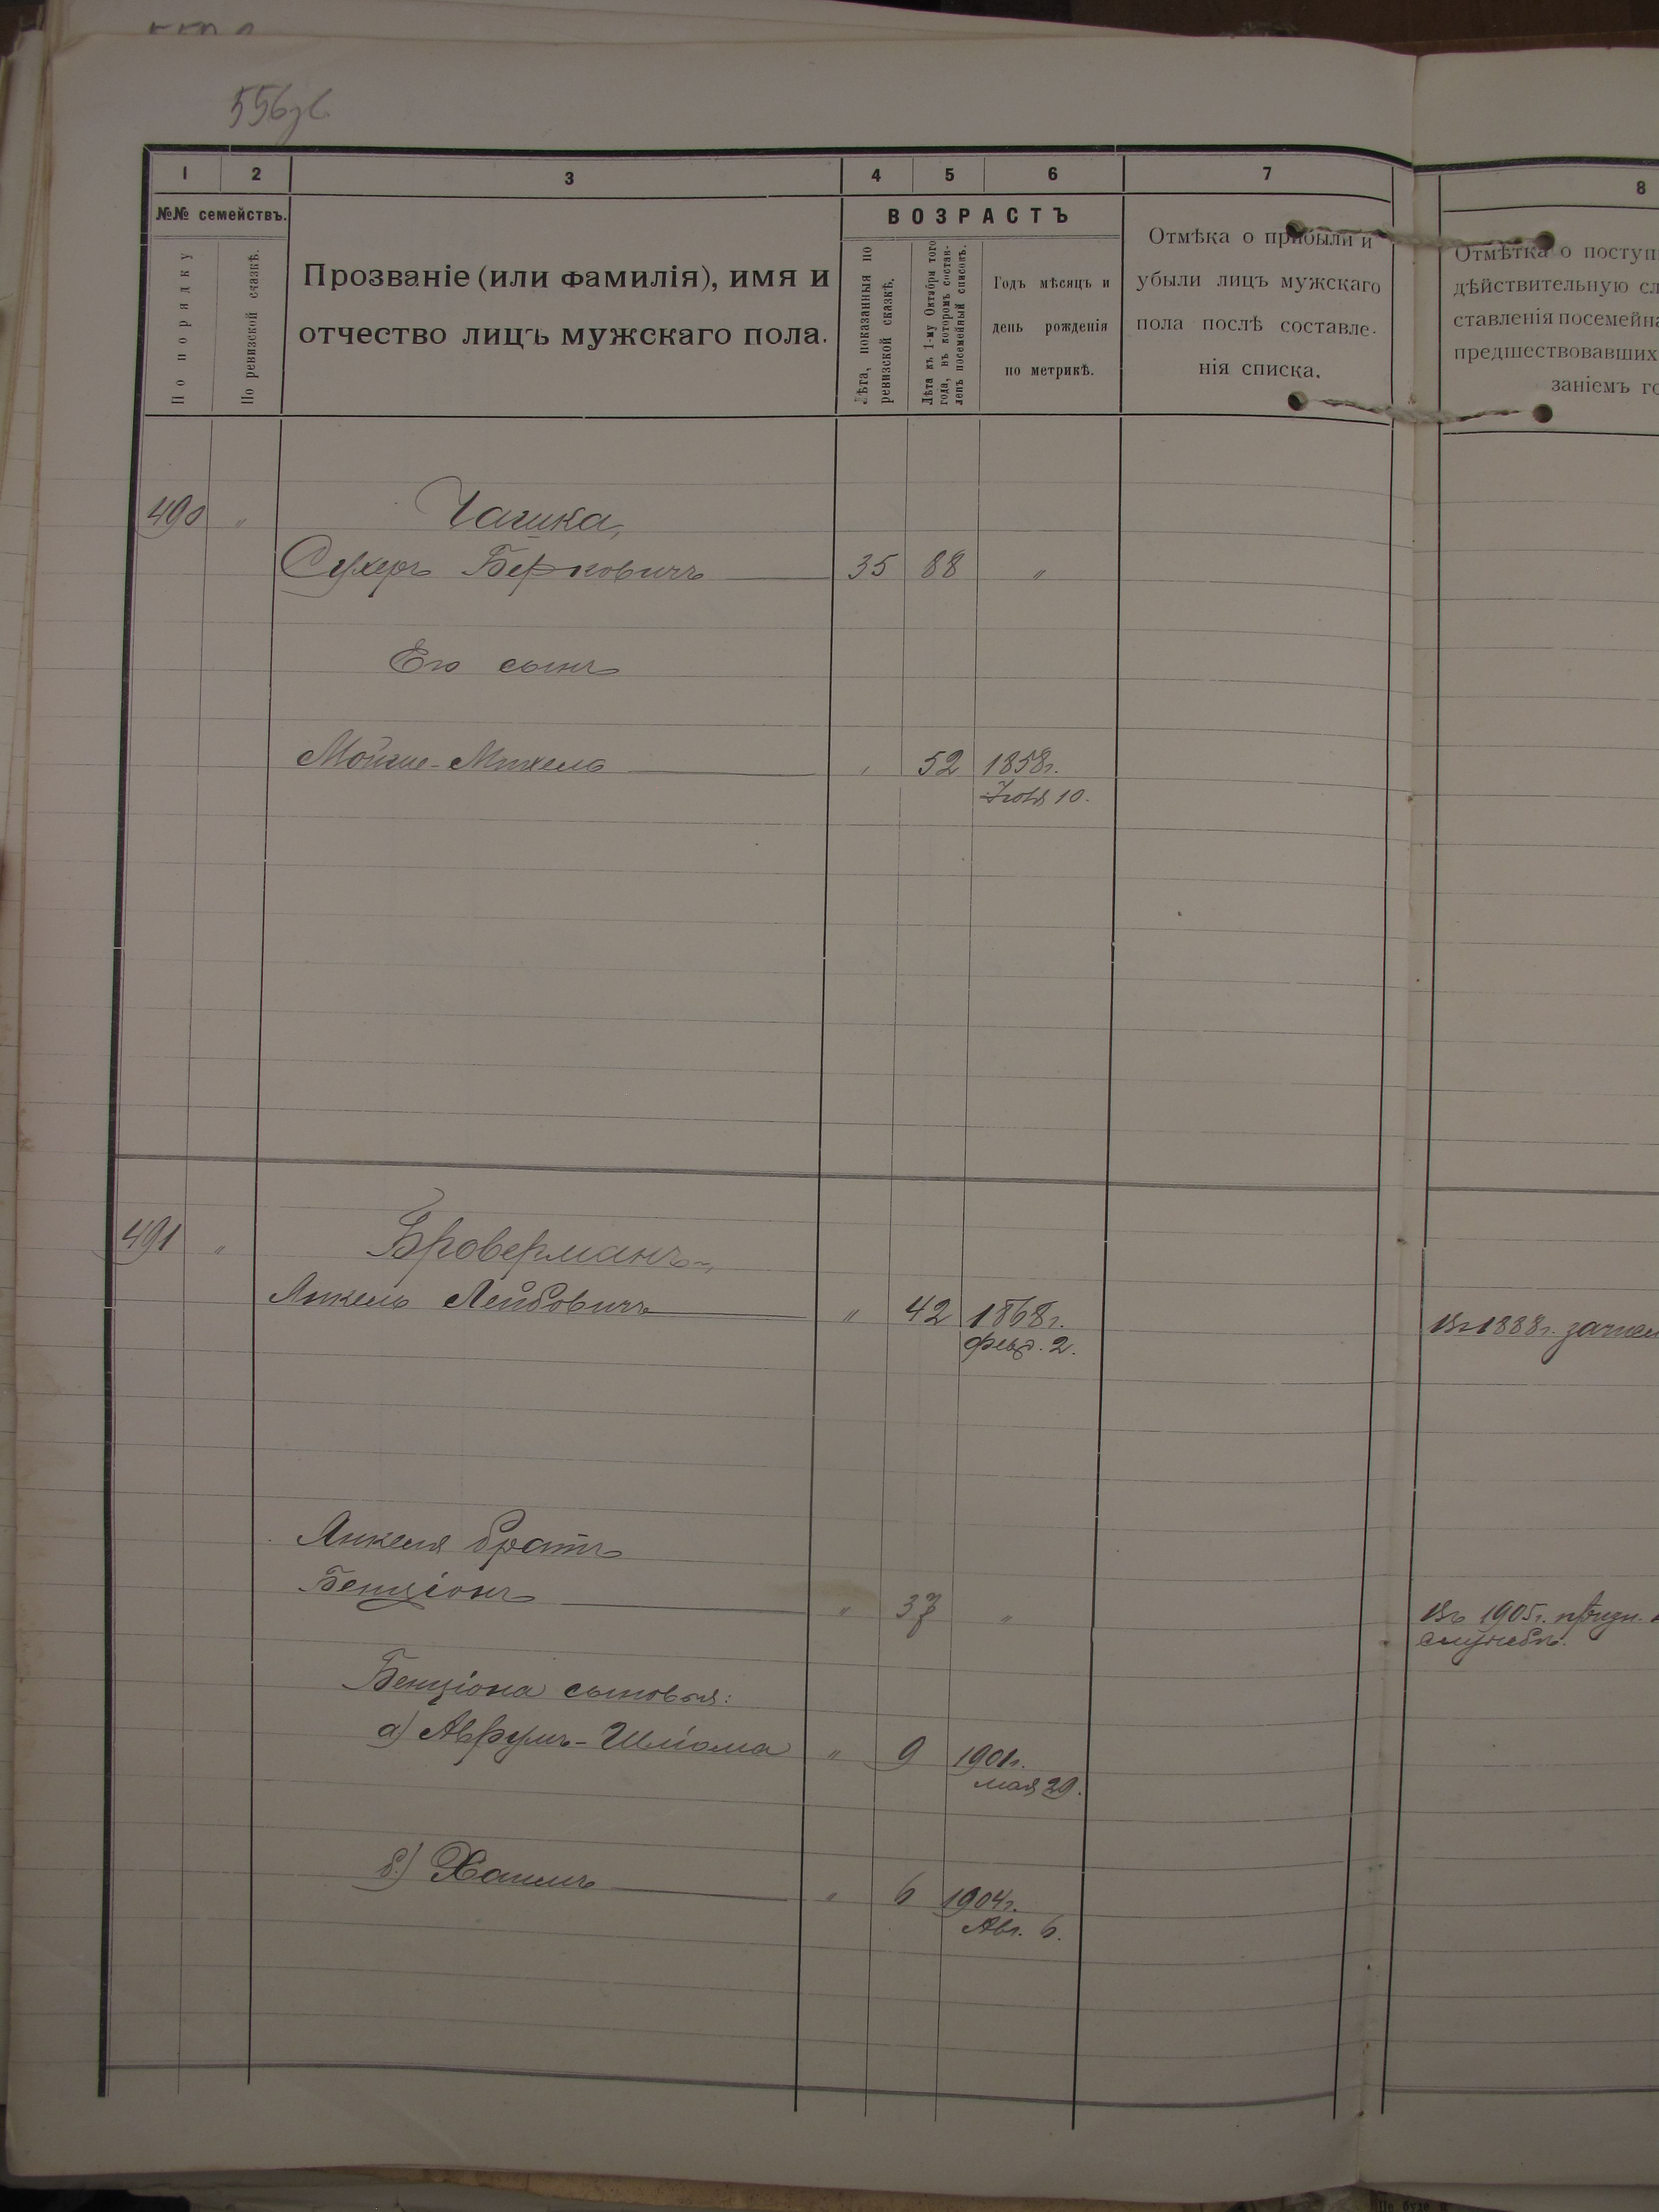 556зв
1 2 3 4 5 6 7 8
№№ семействъ.
По порядку
По ревизской сказкѣ.
Прозваніе (или фамилія), имя и
отчество лицъ мужскаго пола.
ВОЗРАСТЪ
Лѣта, показанныя по
ревизской сказкѣ.
Лѣта къ 1-му Октября того
года, въ которомъ состав-
ленъ посемейный списокъ.
Годъ мѣсяцъ и
день рожденія
по метрикѣ.
Отмѣка о прибыли и
убыли лицъ мужскаго
пола послѣ составле-
нія списка.
Отмѣтка о поступ
дѣйствительную сл
ставленія посемейна
предшествовавших
заніемъ го
490 " Чашка,
Сухеръ Берковичъ 35 88 "
Его сынъ
Мойше-Михель " 52 1858г.
10.
491 " Броверманъ,
Янкель Лейбовичъ " 42 1868г.
февр. 2.
Въ 1888г. зачисл
Янкеля братъ
Бенціонъ " 37 "
Въ 1905г. призн.
службѣ.
Бенціона сыновья:
а) Аврумъ-Шлёма " 9 1901г.
мая 29.
б) Хаимъ " 6 1904г.
Авг. 6.
Не буде